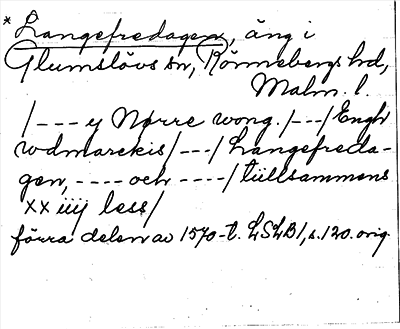 * Langefredagen, äng i
Glumslövs sn, Rönnebergs hd,
Malm. l.
/--- y Nørre wong. /---/ Engh
wdmarckis /---/ Langefreda-
gen, ---- och ----/ tüllsammens
xx iiij less/
förra delen av 1570-t. LSLB1, s. 120. orig.